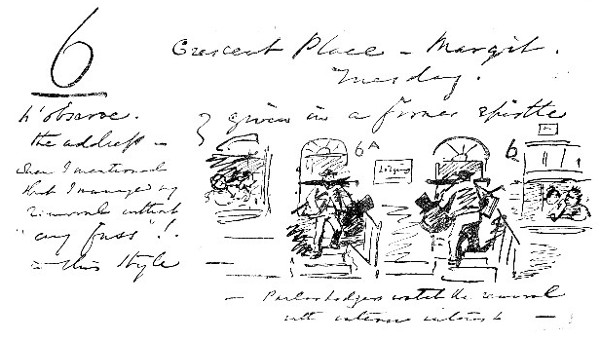 6
Crescent Place – Margit.
Tuesday.
observe.
the address – } given in a former epistle
when I mentioned
that I managed my
removal without
"any fuss"!
– this style –
6A
Lodgings
6
– Parlor Lodgers watch the removal
with intense interest –